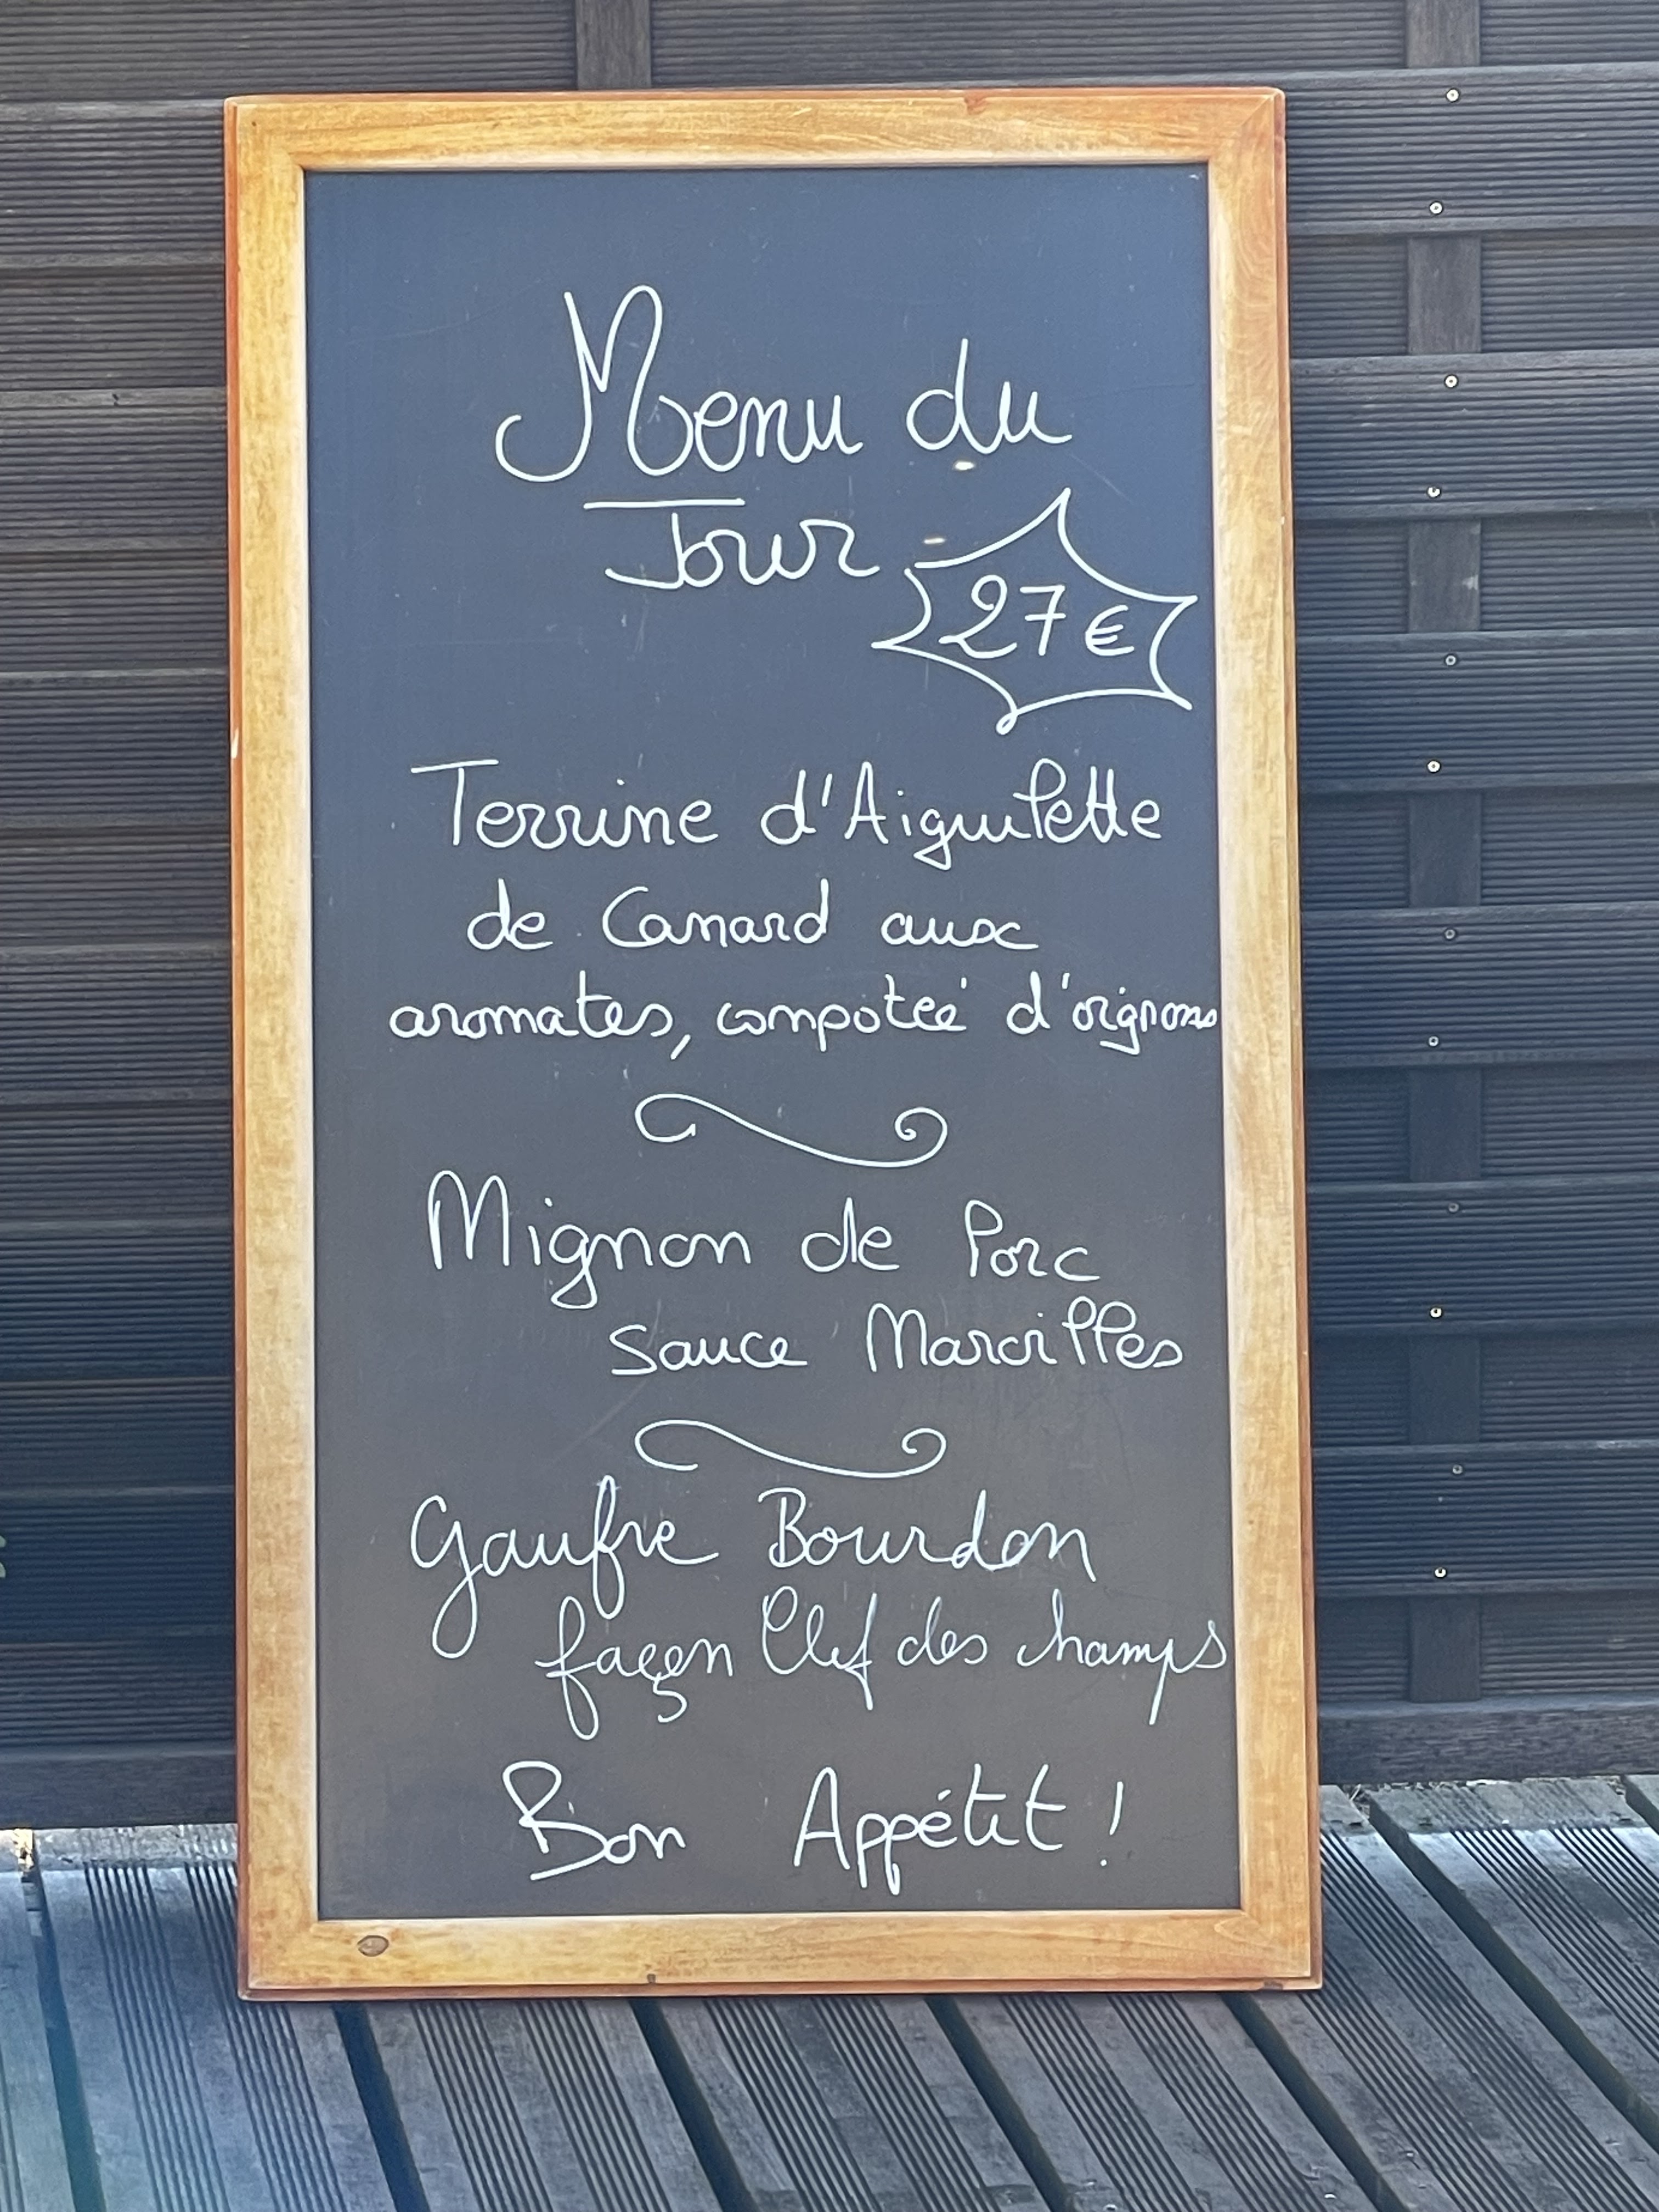 Menu du
Jour
27€
Terrine d'Aiguilette
de Canard aux
aromates, compotée d'oignons
Mignon de Porc
sauce Maroilles
Gaufre Bourdon
façon Clef des champs
Bon Appétit !